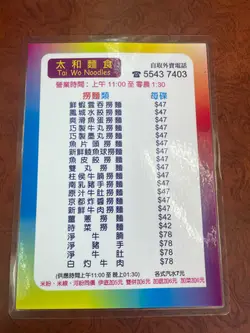 太和麵食
Tai Wo Noodles
自取外賣電話
☎ 5543 7403
營業時間：上午 11:00 至 零晨 1:30
撈麵類 每碟
鮮蝦雲吞撈麵 $47
鳳城水餃撈麵 $47
爽滑魚蛋撈麵 $47
巧製牛丸撈麵 $47
巧製墨丸撈麵 $47
魚片頭撈麵 $47
新鮮鯪魚球撈麵 $47
魚皮餃撈麵 $47
雙丸撈麵 $47
柱侯牛腩撈麵 $47
南乳豬手撈麵 $47
京都炸醬撈麵 $47
新鮮牛肉撈麵 $47
薑蔥撈麵 $42
時菜撈麵 $42
淨牛腩 $78
淨豬手 $78
淨牛肚 $78
白灼牛肉 $78
(供應時間上午11:00 至 晚上01:30) 各式汽水7元